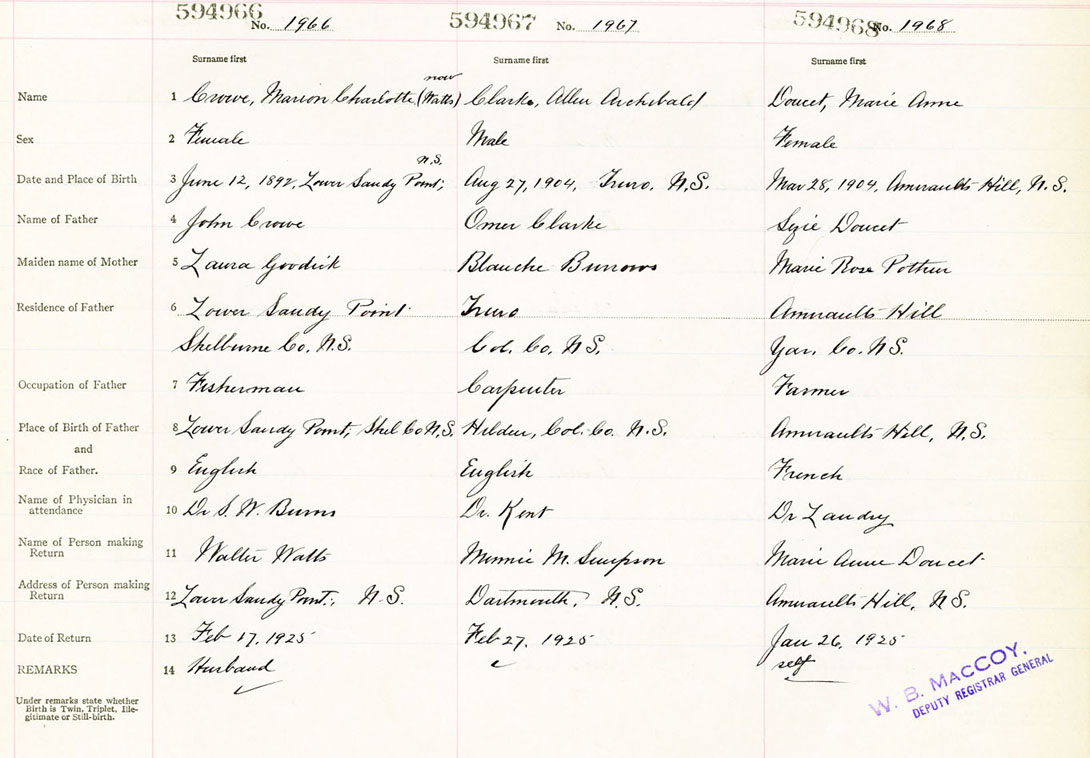 594966 No. 1966 594967 No. 1967 594968 No. 1968
Surname first Surname first Surname first
now
Name 1 Crowe, Marion Charlotte (Watts) Clarke, Allen Archibald Doucet, Marie Anne
Sex 2 Female Male Female
N.S.
Date and Place of Birth 3 June 12, 1892, Lower Sandy Point, Aug 27, 1904, Truro, N.S. Mar 28, 1904, Amiraults Hill, N.S.
Name of Father 4 John Crowe Omer Clarke Doucet
Maiden name of Mother 5 Laura Goodick Blanche Burrows Marie Rose Pothier
Residence of Father 6 Lower Sandy Point Truro Amiraults Hill
Shelburne Co. N.S. Col. Co. N.S. Yar. Co. N.S.
Occupation of Father 7 Fisherman Carpenter Farmer
Place of Birth of Father 8 Lower Sandy Point, Shel Co N.S. Hilden, Col. Co. N.S. Amiraults Hill, N.S.
and
Race of Father. 9 English English French
Name of Physician in
attendance 10 Dr S. W. Burns Dr. Kent Dr Landry
Name of Person making
Return 11 Walter Watts Minnie M. Simpson Marie Anne Doucet
Address of Person making
Return 12 Lower Sandy Point, N.S. Dartmouth, N.S. Amiraults Hill, N.S.
Date of Return 13 Feb 17, 1925 Feb 27, 1925 Jan 26, 1925
REMARKS 14 Husband self
Under remarks state whether
Birth is Twin, Triplet, Ille-
gitimate or Still-birth.
W. B. MACCOY,
DEPUTY REGISTRAR GENERAL